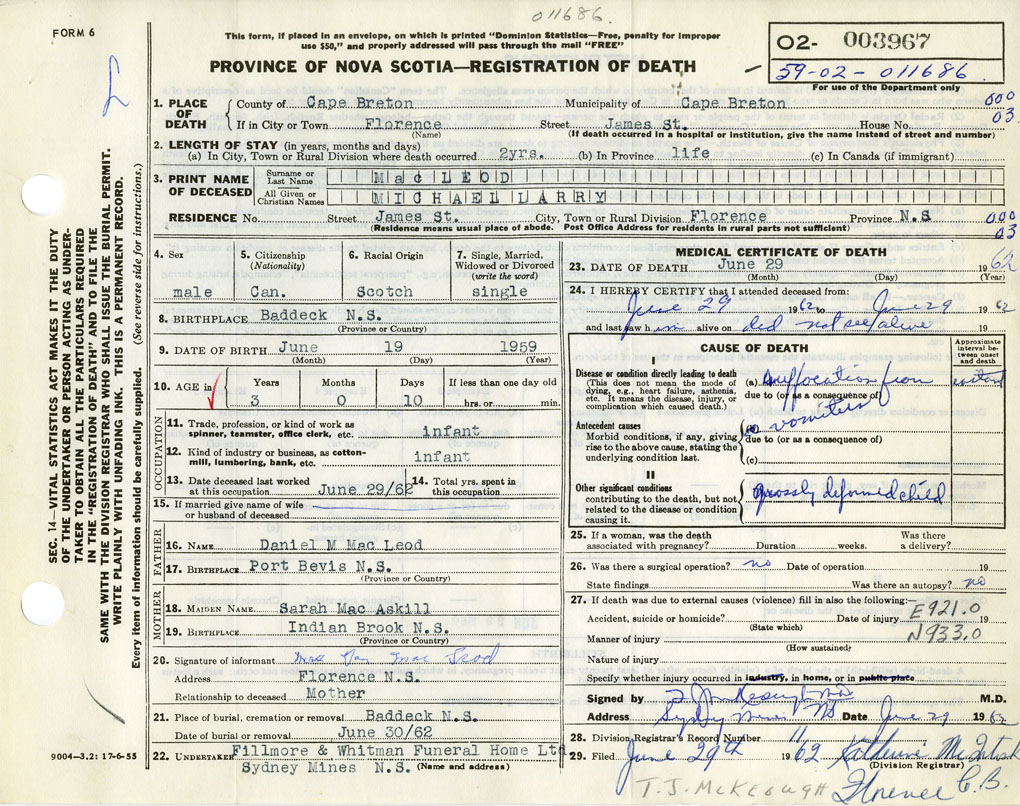 011686.
FORM 6
This form, if placed in an envelope, on which is printed "Dominion Statistics—Free, penalty for improper
use $50," and properly addressed will pass through the mail "FREE"
PROVINCE OF NOVA SCOTIA—REGISTRATION OF DEATH
02- 003967
59-02-011686
For use of the Department only
1. PLACE OF DEATH
County of Cape Breton Municipality of Cape Breton 000
If in City or Town Florence Street James St. House No. 03
(Name) (If death occurred in a hospital or institution, give the name instead of street and number)
2. LENGTH OF STAY (in years, months and days)
(a) In City, Town or Rural Division where death occurred 2yrs. (b) In Province life (c) In Canada (if immigrant)
3. PRINT NAME OF DECEASED
Surname or Last Name MacLEOD
All Given or Christian Names MICHAEL LARRY
RESIDENCE No. Street James St. City, Town or Rural Division Florence Province N.S 000
(Residence means usual place of abode. Post Office Address for residents in rural parts not sufficient) 03
4. Sex male
5. Citizenship (Nationality) Can.
6. Racial Origin Scotch
7. Single, Married, Widowed or Divorced (write the word) single
8. BIRTHPLACE Baddeck N.S.
(Province or Country)
9. DATE OF BIRTH June 19 1959
(Month) (Day) (Year)
10. AGE in Years Months Days If less than one day old
3 0 10 hrs. or min.
OCCUPATION
11. Trade, profession, or kind of work as
spinner, teamster, office clerk, etc. infant
12. Kind of industry or business, as cotton-
mill, lumbering, bank, etc. infant
13. Date deceased last worked
at this occupation June 29/62
14. Total yrs. spent in
this occupation
15. If married give name of wife
or husband of deceased
FATHER
16. NAME Daniel M Mac Leod
17. BIRTHPLACE Port Bevis N.S.
(Province or Country)
MOTHER
18. MAIDEN NAME Sarah Mac Askill
19. BIRTHPLACE Indian Brook N.S.
(Province or Country)
20. Signature of informant Mrs Dan Mac Leod
Address Florence N.S.
Relationship to deceased Mother
21. Place of burial, cremation or removal Baddeck N.S.
Date of burial or removal June 30/62
22. UNDERTAKER Fillmore & Whitman Funeral Home Ltd
Sydney Mines N.S. (Name and address)
MEDICAL CERTIFICATE OF DEATH
23. DATE OF DEATH June 29 1962
(Month) (Day) (Year)
24. I HEREBY CERTIFY that I attended deceased from:
June 29 1962 to June 29 1962
and last saw him alive on did not see/alive 19
CAUSE OF DEATH
Approximate interval between onset and death
I
Disease or condition directly leading to death
(This does not mean the mode of
dying, e.g., heart failure, asthenia,
etc. It means the disease, injury, or
complication which caused death.)
(a) Suffocation from instant
due to (or as a consequence of)
Antecedent causes
Morbid conditions, if any, giving
rise to the above cause, stating the
underlying condition last.
(b) vomitus
due to (or as a consequence of)
(c)
II
Other significant conditions
contributing to the death, but not
related to the disease or condition
causing it.
grossly deformed child
25. If a woman, was the death Was there
associated with pregnancy? Duration weeks. a delivery?
26. Was there a surgical operation? no Date of operation 19
State findings Was there an autopsy? no
27. If death was due to external causes (violence) fill in also the following:
Accident, suicide or homicide? Date of injury 19
(State which)
E921.0
Manner of injury N933.0
(How sustained)
Nature of injury
Specify whether injury occurred in industry, in home, or in public place
Signed by M.D.
Address Sydney Mines NS Date June 29 1962
28. Division Registrar's Record Number 11
29. Filed June 29th 1962 Katherine McIntosh
(Division Registrar)
T.J. McKEOUGH Florence C.B.
SEC. 14—VITAL STATISTICS ACT MAKES IT THE DUTY
OF THE UNDERTAKER OR PERSON ACTING AS UNDER-
TAKER TO OBTAIN ALL THE PARTICULARS REQUIRED
IN THE "REGISTRATION OF DEATH" AND TO FILE THE
SAME WITH THE DIVISION REGISTRAR WHO SHALL ISSUE THE BURIAL PERMIT.
WRITE PLAINLY WITH UNFADING INK. THIS IS A PERMANENT RECORD.
Every item of information should be carefully supplied. (See reverse side for instructions.)
9004—3.2: 17-6-55